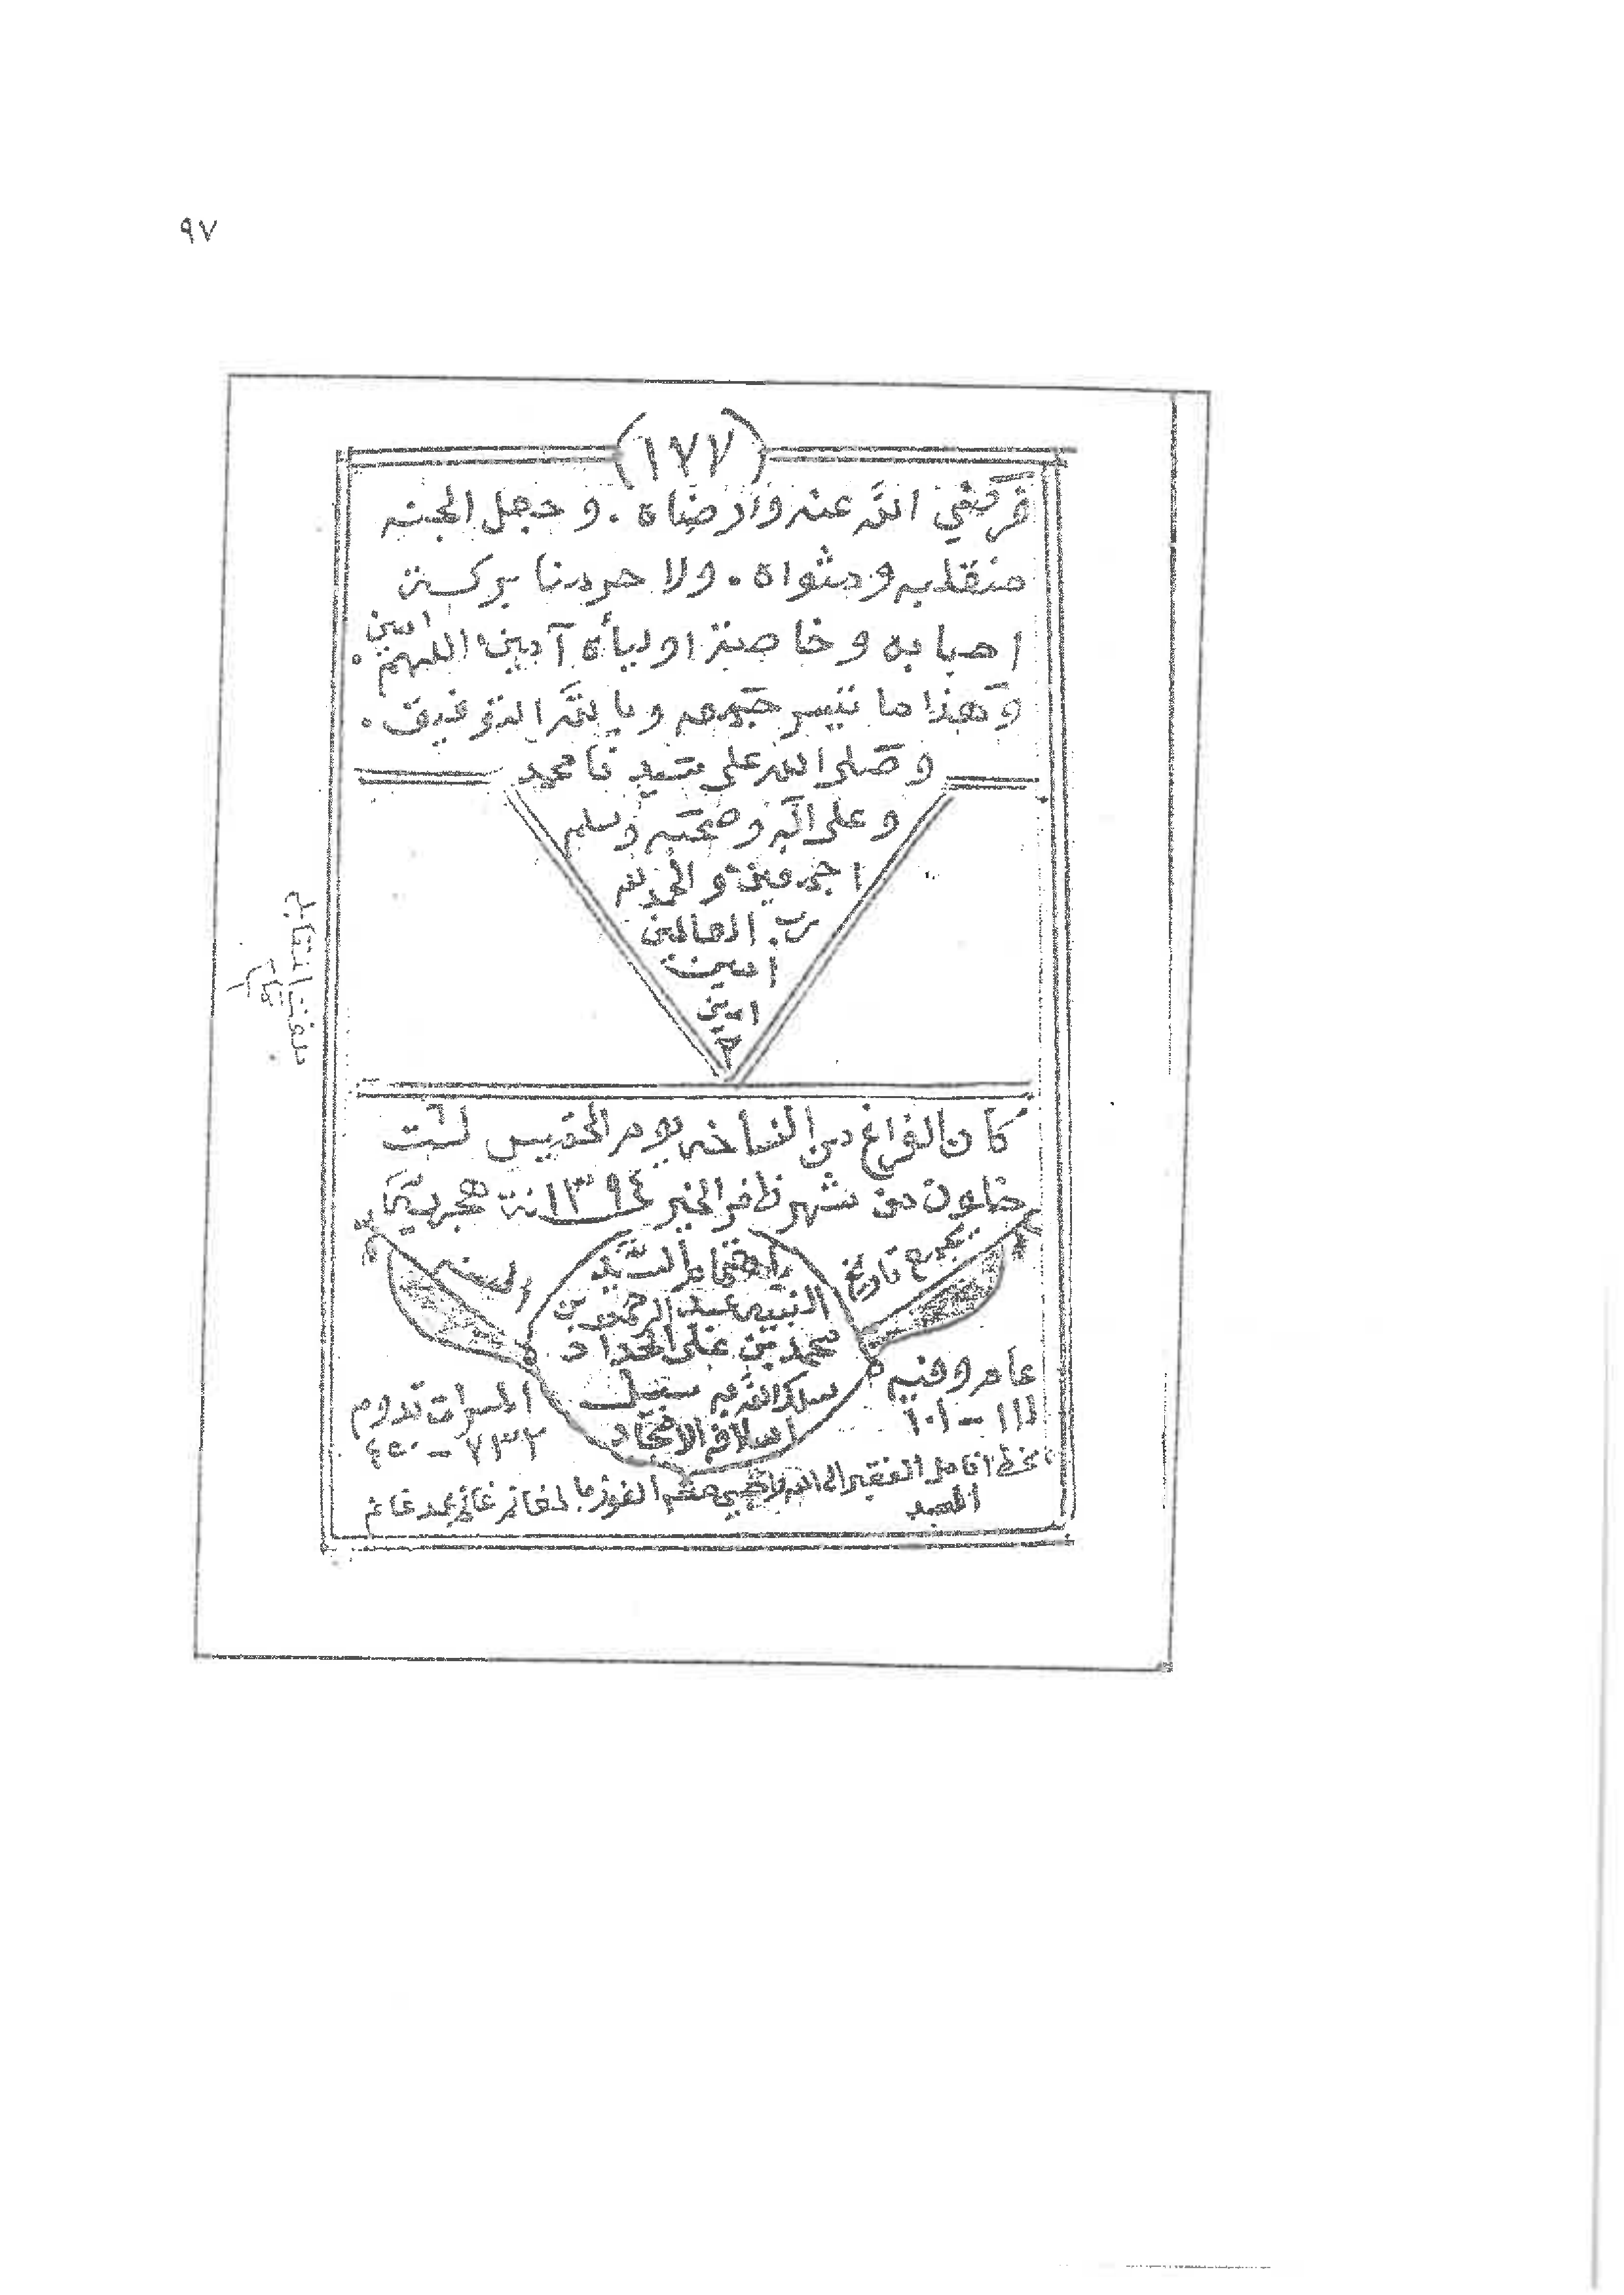 ٩٧
(١٧٧)
فرضي الله عنه وارضاه . وجعل الجنه
منقلبه ومثواه . ولا حرمنا بركسة
احبابه وخاصة اوليأه آمين اللهم امين .
وهذا ما تيسر جمعه وبالله التوفيق .
وصلى الله على سيدنا محمد
وعلى آله وصحبه وسلم
اجمعين والحمدلله
رب العالمين
امين
امين
بلغت مقابلة
كان الفراغ من النساخه يوم الخميس لست
خلون من شهر ظفر الخير ١٣٩٤نة هجرية
يجمع تاريخ
السنه
باهتمام السيد
النبيه عبد الرحمن بن
محمد بن علي الحداد
سلك الله به سبيل
اسلافه الامجاد
عام وفيه
١١١ - ١٠١
المسرات تدوم
٧٣٢ - ٤٥٠
بخط انامل الفقير الى الله غانم محمد غانم